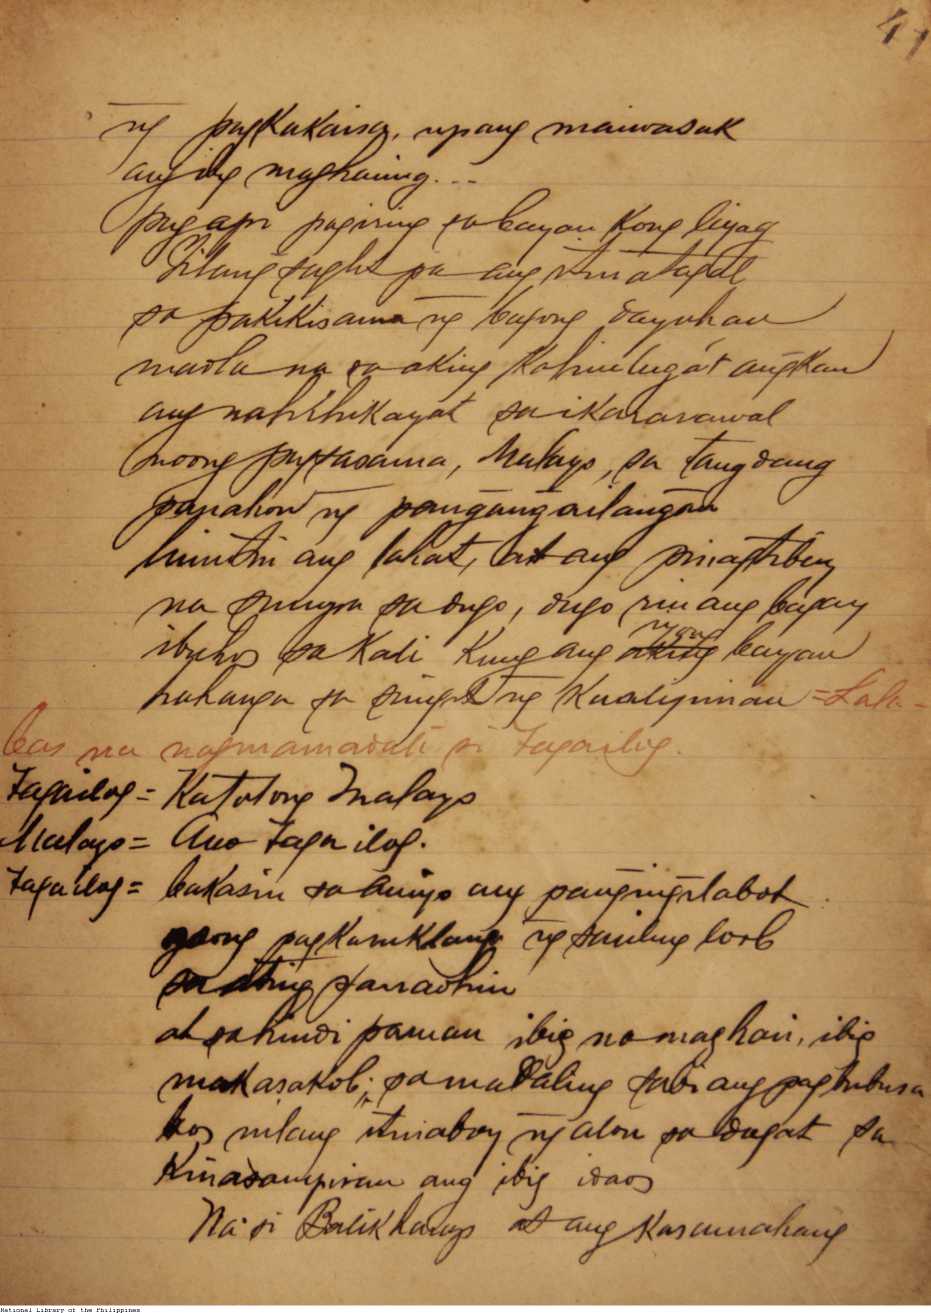 41
ng pagkakaisa, upang maiwasak
ang ibig magharing...
pag api pagiring sa bayan kong liyag
Ilang saglit pa ang itinatagal
sa pakikisama ng bagong dayuhan
madla na sa aking kahinlugát angkan
ang nahihikayat sa ikararawal
noong pagsasama, Malayo, sa tangdang
panahon ng pangangailangan
limutin ang lahat, at ang pinagtibay
na sumpa sa dugo, dugo rin ang bayan
ibuhos sa Kali kung ang iyong bayan
nakanga sa singil ng Kaalipinan = Lala-
bas na nagmamadali si Tagailog.
Tagailog = Katotong Malayo
Malayo = Ano Taga ilog.
Taga ilog = bakasin sa anyo ang pangingilabot
ng sariling loob
sa ating
at sa hindi paman ibig na maghari, ibig
makasakob; sa madaling sabi ang pagbubusa
bos nilang itinaboy ng alon sa dagat sa
Kinadampiran ang ibig idaos
Na si Balikhanyo at ang kasamahang
National Library of the Philippines